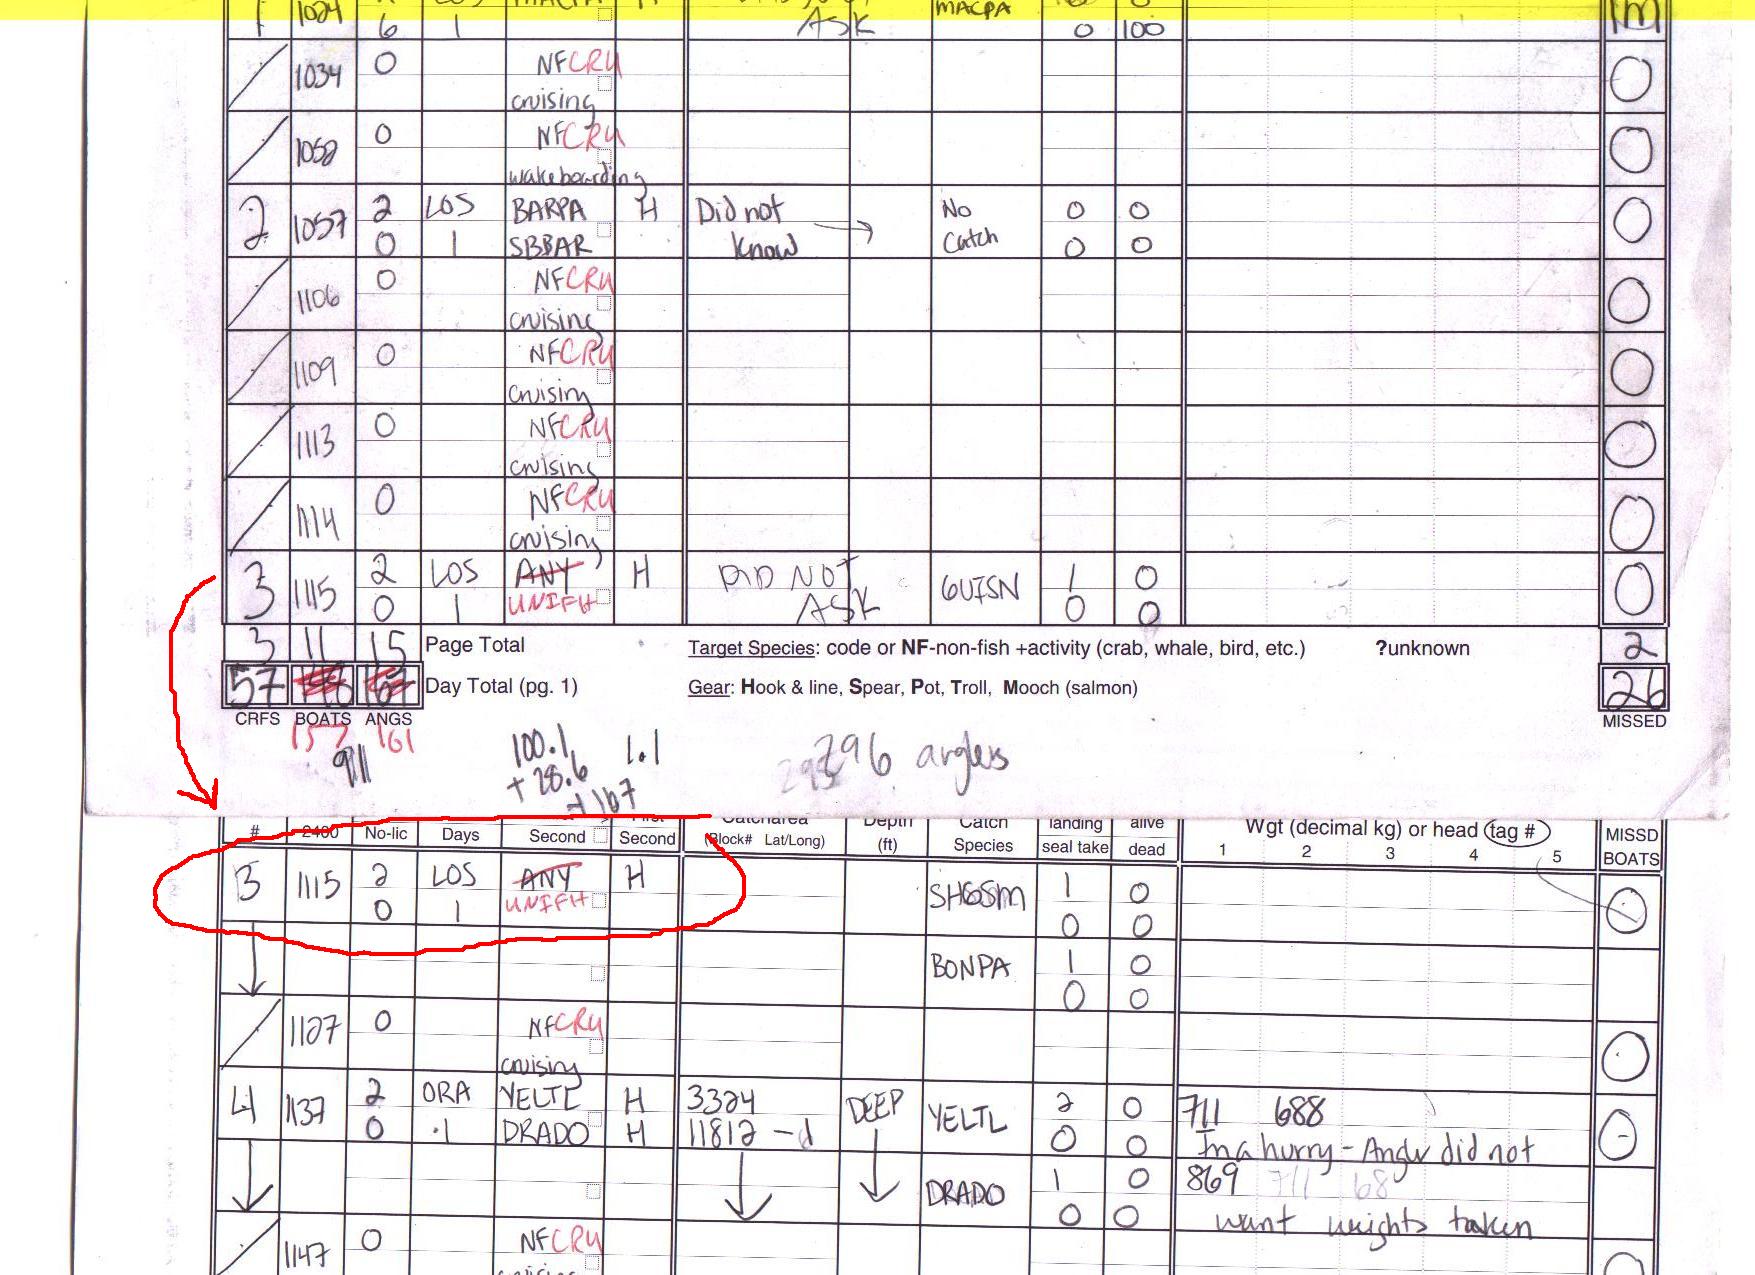 1 1024 LOS MACPA H MACPA 0 1M
6 1 ASK 0 100
1034 0 NFCRU 0
cruising
1052 0 NFCRU 0
wakeboarding
2 1057 2 LOS BARPA H Did not No 0 0 0
0 1 SBBAR know Catch 0 0
1106 0 NFCRU 0
cruising
1109 0 NFCRU 0
cruising
1113 0 NFCRU 0
cruising
1114 0 NFCRU 0
cruising
3 1115 2 LOS ANY H DID NOT GUISN 1 0 0
0 1 UNIFH ASK 0 0
3 11 15 Page Total Target Species: code or NF-non-fish +activity (crab, whale, bird, etc.) ?unknown 2
57 Day Total (pg. 1) Gear: Hook & line, Spear, Pot, Troll, Mooch (salmon) 26
CRFS BOATS ANGS MISSED
157 161
911
100.1 1.1 296 anglers
+ 28.6
+ 167
Catcharea Depth Catch landing alive Wgt (decimal kg) or head tag # MISSD
# 2400 No-lic Days Second Second (Block# Lat/Long) (ft) Species seal take dead 1 2 3 4 5 BOATS
3 1115 2 LOS ANY H SHGSM 1 0 0
0 1 UNIFH 0 0
BONPA 1 0
0 0
1127 0 NFCRU 0
cruising
4 1137 2 ORA YELTL H 3324 DEEP YELTL 2 0 711 688 0
0 .1 DRADO H 11812 -d 0 0 In a hurry - Angler did not
DRADO 1 0 869 711 68
0 0 want weights taken
1147 0 NFCRU
cruising